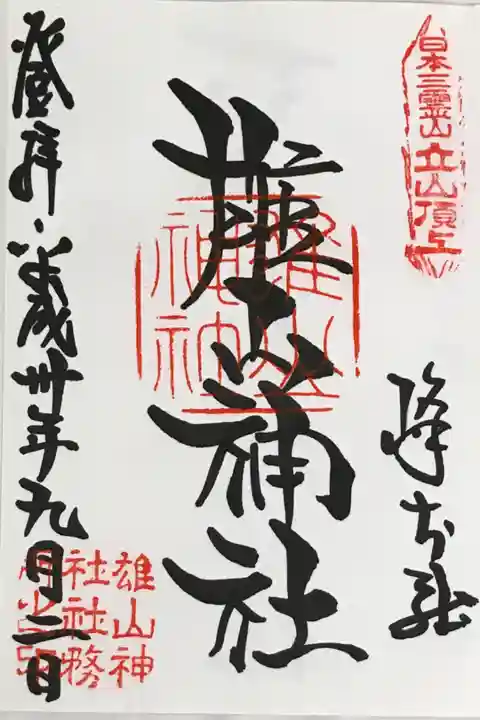 日本三靈山
立山頂上
峰本社
雄山神社
雄山
神社
登拝 平成卅年九月二日
雄山神
社社務
所之印